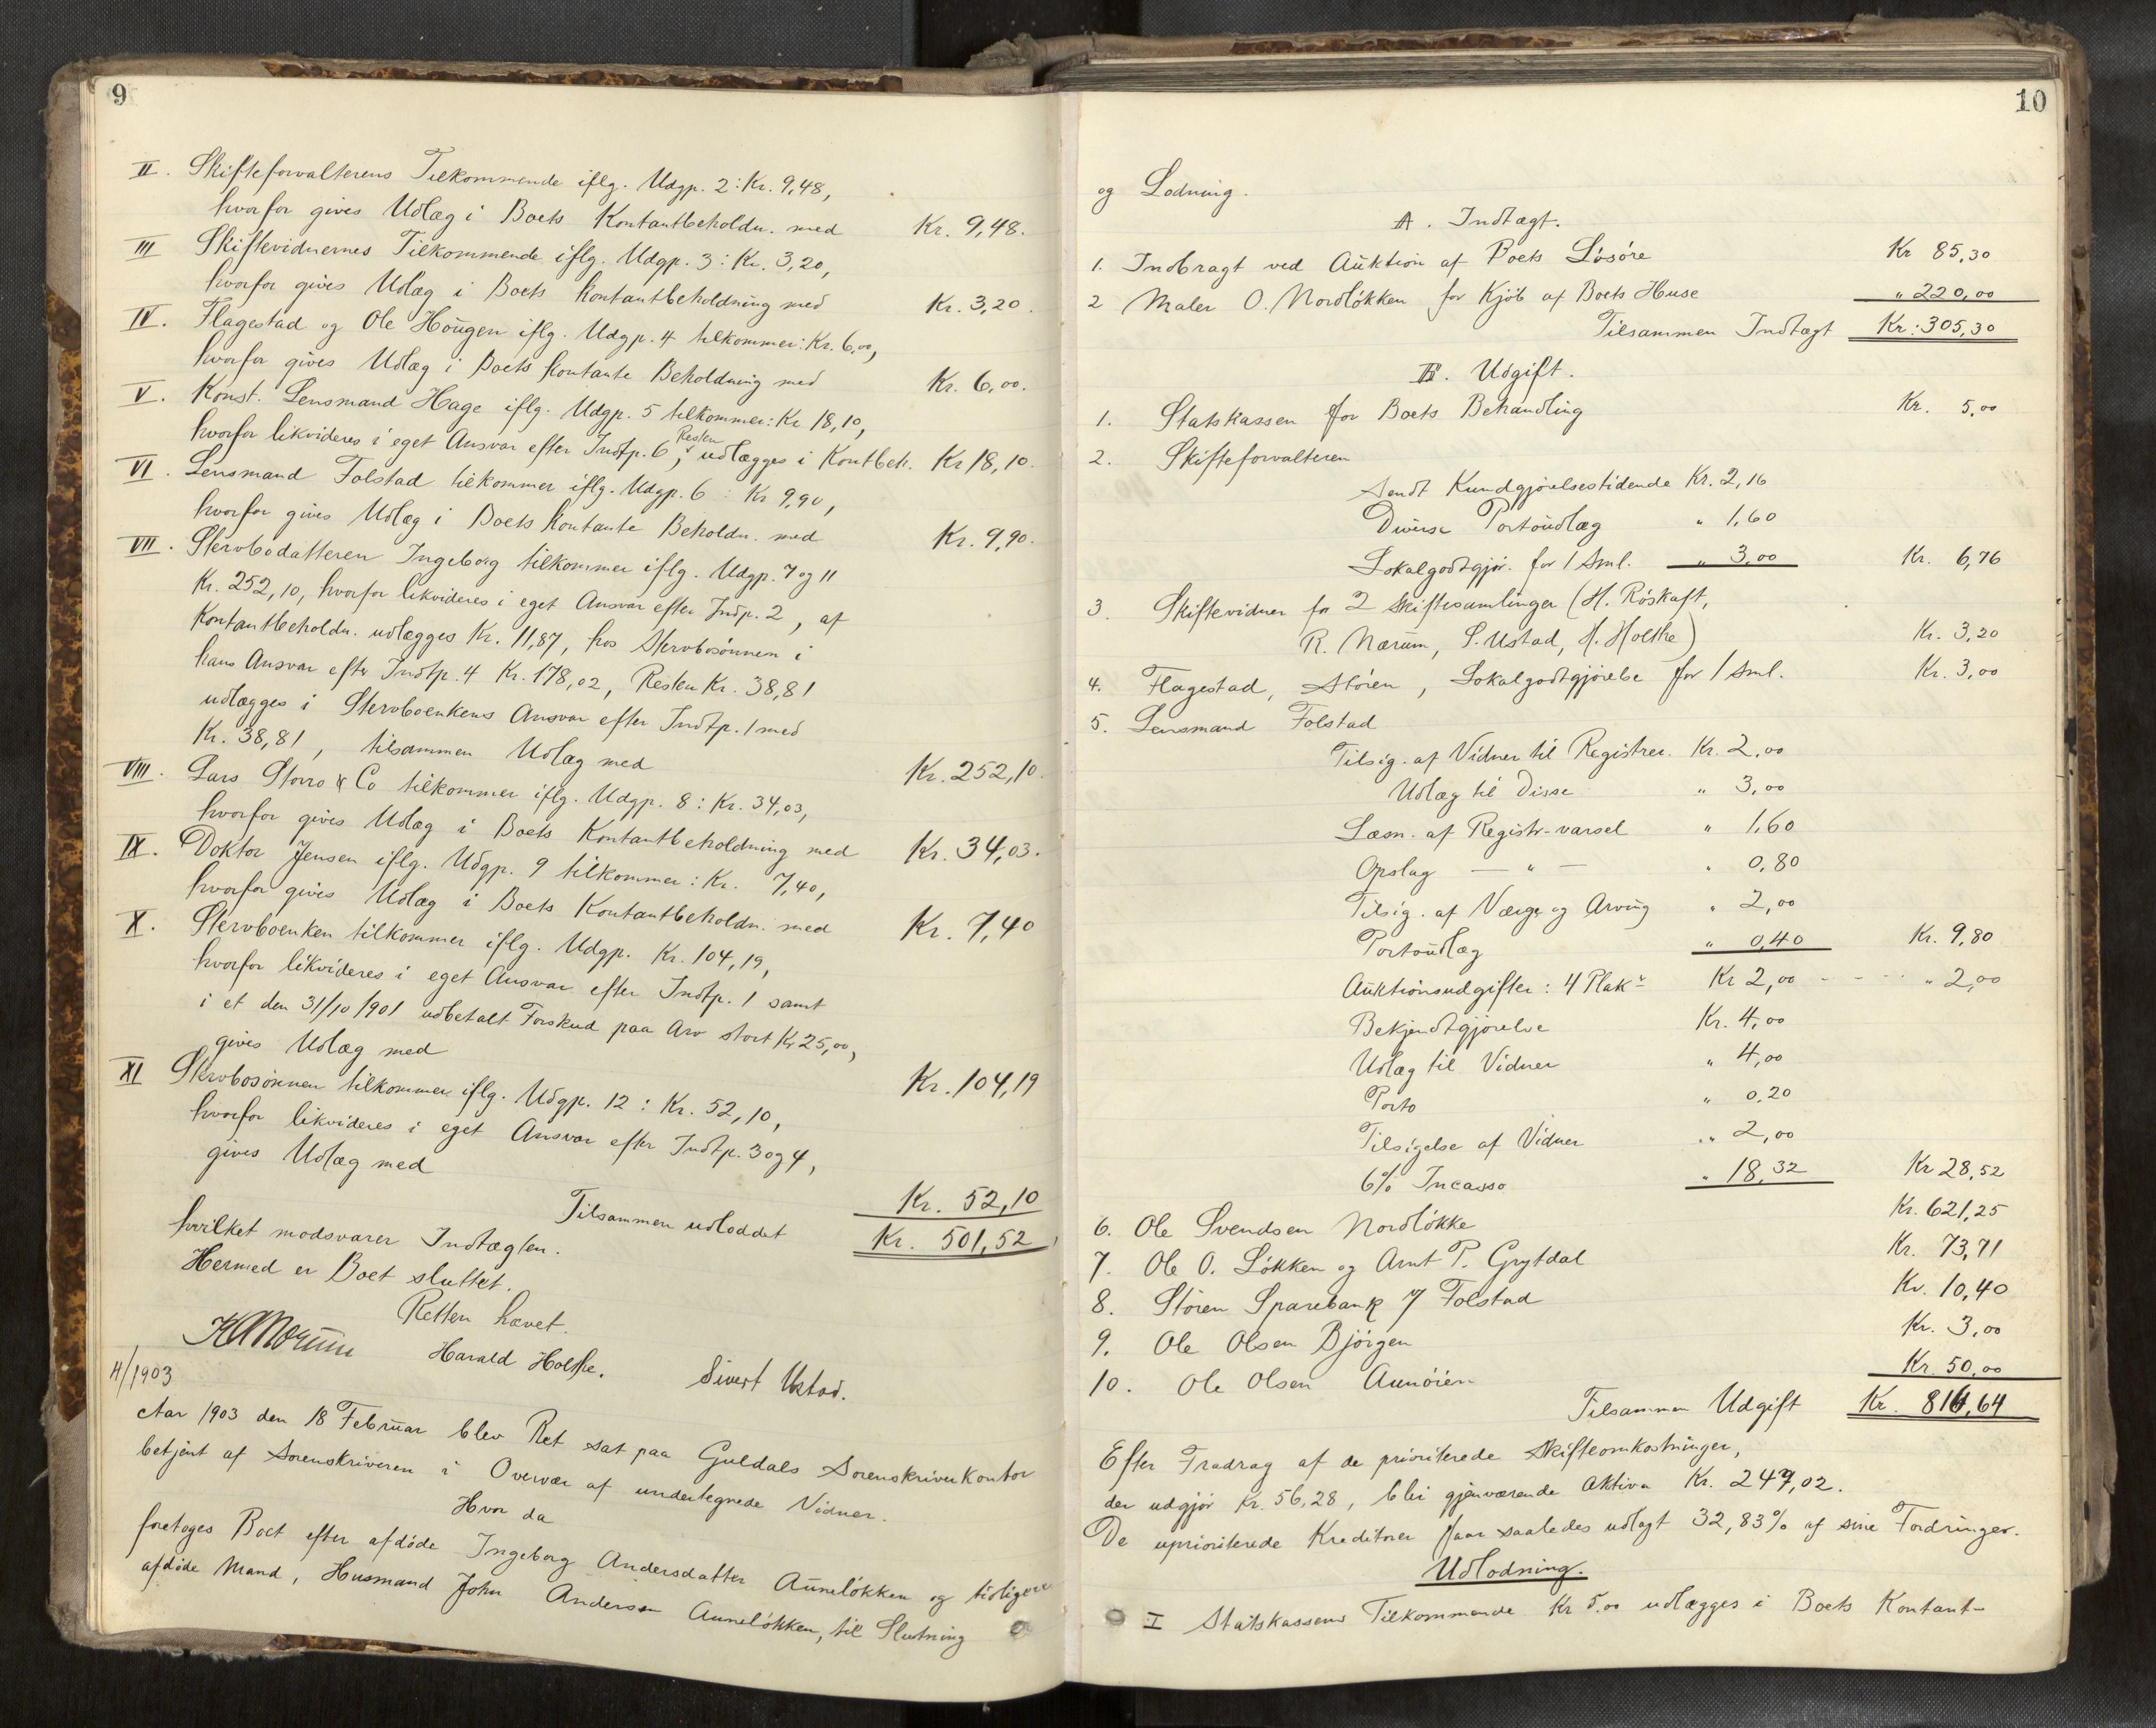 9
II. Skifteforvalterens Tilkommende iflg. Udgp. 2: Kr. 9,48,
hvorfor gives Udlæg i Boets Kontantbeholdn. med Kr. 9,48.
III Skiftevidnernes Tilkommende iflg. Udgp. 3: Kr. 3,20,
hvorfor gives Udlæg i Boets Kontantbeholdning med Kr. 3,20.
IV. Flagestad og Ole Hougen iflg. Udgp. 4 tilkommer: Kr. 6,00,
hvorfor gives Udlæg i Boets kontante Beholdning med Kr. 6,00.
V. Konst. Lensmand Hage iflg. Udgp. 5 tilkommer: Kr 18,10,
hvorfor likvideres i eget Ansvar efter Indtp. 6, Resten udlægges i Kontbeh. Kr 18,10.
VI. Lensmand Folstad tilkommer iflg. Udgp. 6: Kr 9,90,
hvorfor gives Udlæg i Boets kontante Beholdn. med Kr. 9,90.
VII. Stervbodatteren Ingeborg tilkommer iflg. Udgp. 7 og 11
Kr. 252,10, hvorfor likvideres i eget Ansvar efter Indp. 2, af
Kontantbeholdn. udlægges Kr. 11,87, hos Stervbosönnen i
hans Ansvar efter Indtp. 4 Kr. 178,02, Resten Kr. 38,81
udlægges i Stervboenkens Ansvar efter Indtp. 1 med
Kr. 38,81, tilsammen Udlæg med Kr. 252,10.
VIII. Lars Storro & Co tilkommer iflg. Udgp. 8: Kr. 34,03,
hvorfor gives Udlæg i Boets Kontantbeholdning med Kr. 34,03.
IX. Doktor Jensen iflg. Udgp. 9 tilkommer: Kr. 7,40,
hvorfor gives Udlæg i Boets Kontantbeholdn. med Kr. 7,40
X. Stervboenken tilkommer iflg. Udgp. Kr. 104,19,
hvorfor likvideres i eget Ansvar efter Indtp. 1 samt
i et den 31/10 1901 udbetalt Forskud paa Arv stort Kr 25,00,
gives Udlæg med Kr. 104,19
XI Stervbosönnen tilkommer iflg. Udgp. 12: Kr. 52,10,
hvorfor likvideres i eget Ansvar efter Indtp. 3 og 4,
gives Udlæg med Kr. 52,10
Tilsammen udloddet Kr. 501,52
hvilket modsvarer Indtægten.
Hermed er Boet sluttet.
Retten hævet.
Harald Holthe. Sivert Ustad.
4/1903
Aar 1903 den 18 Februar blev Ret sat paa Guldals Sorenskriverkontor
betjent af Sorenskriveren i Overvær af undertegnede Vidner.
Hvor da
foretoges Boet efter afdöde Ingeborg Andersdatter Aunelökken og tidligere
afdöde Mand, Husmand John Andersen Aunelökken, til Slutning
10
og Lodning.
A. Indtægt.
1. Indbragt ved Auktion af Boets Lösöre Kr 85,30
2 Maler O. Nordlökken for Kjöb af Boets Huse " 220,00
Tilsammen Indtægt Kr: 305,30
B. Udgift.
1. Statskassen for Boets Behandling Kr. 5,00
2. Skifteforvalteren
Sendt Kundgjörelsestidende Kr. 2,16
Diverse Portoudlæg " 1,60
Lokalgodtgjör. for 1 Sml. " 3,00 Kr. 6,76
3. Skiftevidner for 2 Skiftesamlinger (H. Röskaft,
R. Nærum, S. Ustad, H. Holthe) Kr. 3,20
4. Flagestad, Stören, Lokalgodtgjörelse for 1 Sml. Kr. 3,00
5. Lensmand Folstad
Tilsig. af Vidner til Registrer. Kr. 2,00
Udlæg til Disse " 3,00
Læsn. af Registr-varsel " 1,60
Opslag — " — " 0,80
Tilsig. af Værge og Arving " 2,00
Portoudlæg " 0,40 Kr. 9,80
Auktionsudgifter: 4 Plakr Kr 2,00 - - - " 2,00
Bekjendtgjörelse Kr. 4,00
Udlæg til Vidner " 4,00
Porto " 0,20
Tilsigelse af Vidner " 2,00
6% Incasso " 18,32 Kr 28,52
6. Ole Svendsen Nordlökke Kr. 621,25
7. Ole O. Lökken og Arnt P. Grytdal Kr. 73,71
8. Stören Sparebank v/ Folstad Kr. 10,40
9. Ole Olsen Björgen Kr. 3,00
10. Ole Olsen Aunöien Kr. 50,00
Tilsammen Udgift Kr. 814,64
Efter Fradrag af de prioriterede Skifteomkostninger,
der udgjör Kr. 56,28, blir gjenværende Aktiva Kr. 247,02.
De uprioriterede Kreditorer faar saaledes udlagt 32,83% af sine Fordringer.
Udlodning.
I Statskassens Tilkommende Kr 5.00 udlægges i Boets Kontant-